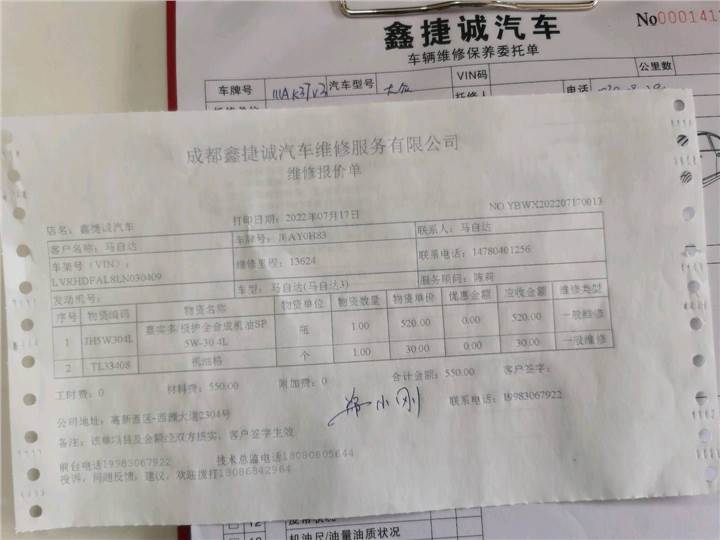 鑫捷诚汽车
No000141
车辆维修保养委托单
公里数
VIN码
车牌号 汽车型号 大众
托修人 电话
成都鑫捷诚汽车维修服务有限公司
维修报价单
NO.YBWX202207170013
店名：鑫捷诚汽车 打印日期：2022年07月17日
客户名称：马自达 车牌号：川AY0H83 联系人：马自达
车架号（VIN）： 维修里程：13624 联系电话：14780401256
LVRHDFAL8LN030409
发动机号： 车型：马自达(马自达3) 服务顾问：陈莉
序号 物资编码 物资名称 物资单位 物资数量 物资单价 优惠金额 应收金额 维修类型
1 JH5W304L 嘉实多/极护全合成机油SP 瓶 1.00 520.00 0.00 520.00 一般维修
5W-30 4L
2 TL33408 机油格 个 1.00 30.00 0.00 30.00 一般维修
工时费：0 材料费：550.00 附加费：0 合计金额：550.00 客户签字：
公司地址：高新西区-西源大道2304号 联系电话：
备注：该单项目及金额经双方核实，客户签字生效
前台电话19983067922 技术总监电话18080805644
投诉，问题反馈，建议，欢迎拨打18086842964
12
机油尺/油量油质状况